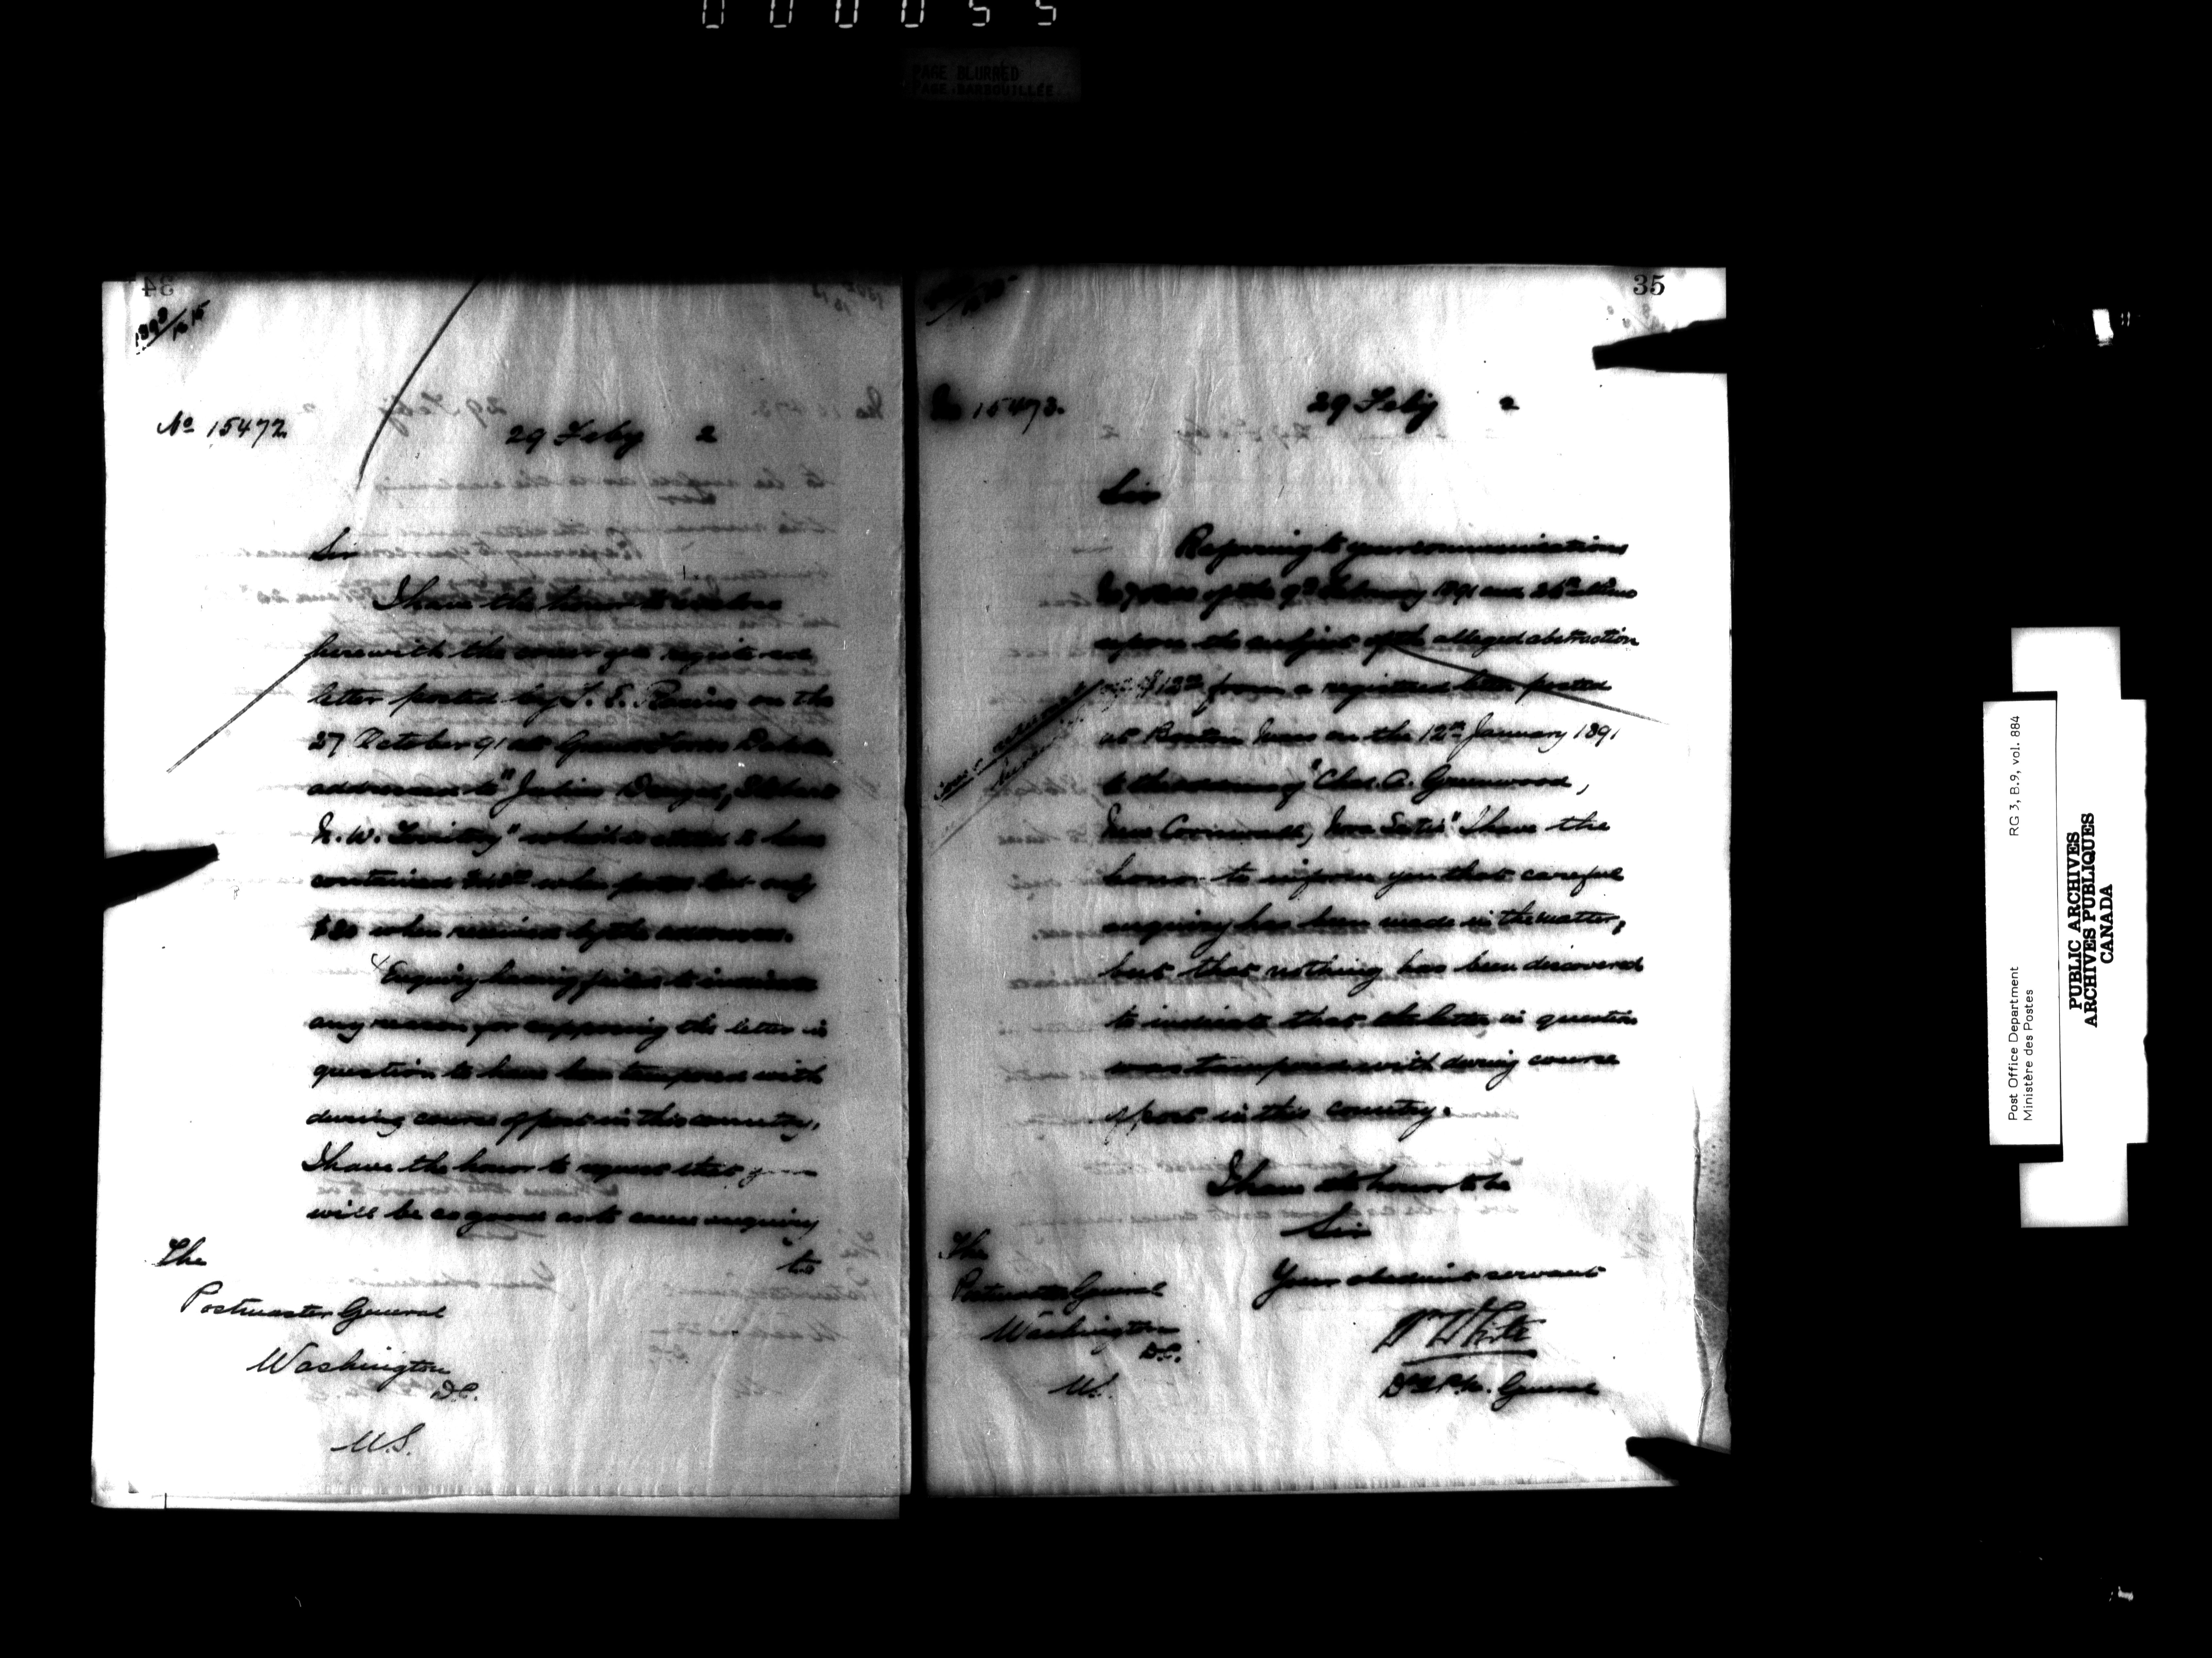 000055
PAGE BLURRED
PAGE BARBOUILLÉE
34
No 15472
29 Feby 2
Sir
I have the honor to enclose
herewith the cover of a registered
letter posted by S. E. on the
27 October 91 at Dakota
addressed to "Julius
N. W. Territory" which is stated to have
contained when posted but only
$80 when received by the addressee.
Enquiry having failed to indicate
any reason for supposing the letter in
question to have been tampered with
during course of post in this country,
I have the honor to request that you
will be so good as to cause enquiry
to
The
Postmaster General
Washington
D.C.
U.S.
35
No 15473.
29 Feby 2
Sir
Referring to your communications
of the 9th February 1891 and 26th ultimo
upon the subject of the alleged abstraction
of $12 from a registered letter posted
at Boston Mass on the 12th January 1891
to the address of "Chas. A. Greenwood,
New Cornwall, Nova Scotia" I have the
honor to inform you that careful
enquiry has been made in the matter,
but that nothing has been discovered
to indicate that the letter in question
was tampered with during course
of post in this country.
I have the honor to be
Sir
Your obedient servant
General
The
Postmaster General
Washington
D.C.
U.S.
Post Office Department
Ministère des Postes
RG 3, B.9, vol. 884
PUBLIC ARCHIVES
ARCHIVES PUBLIQUES
CANADA